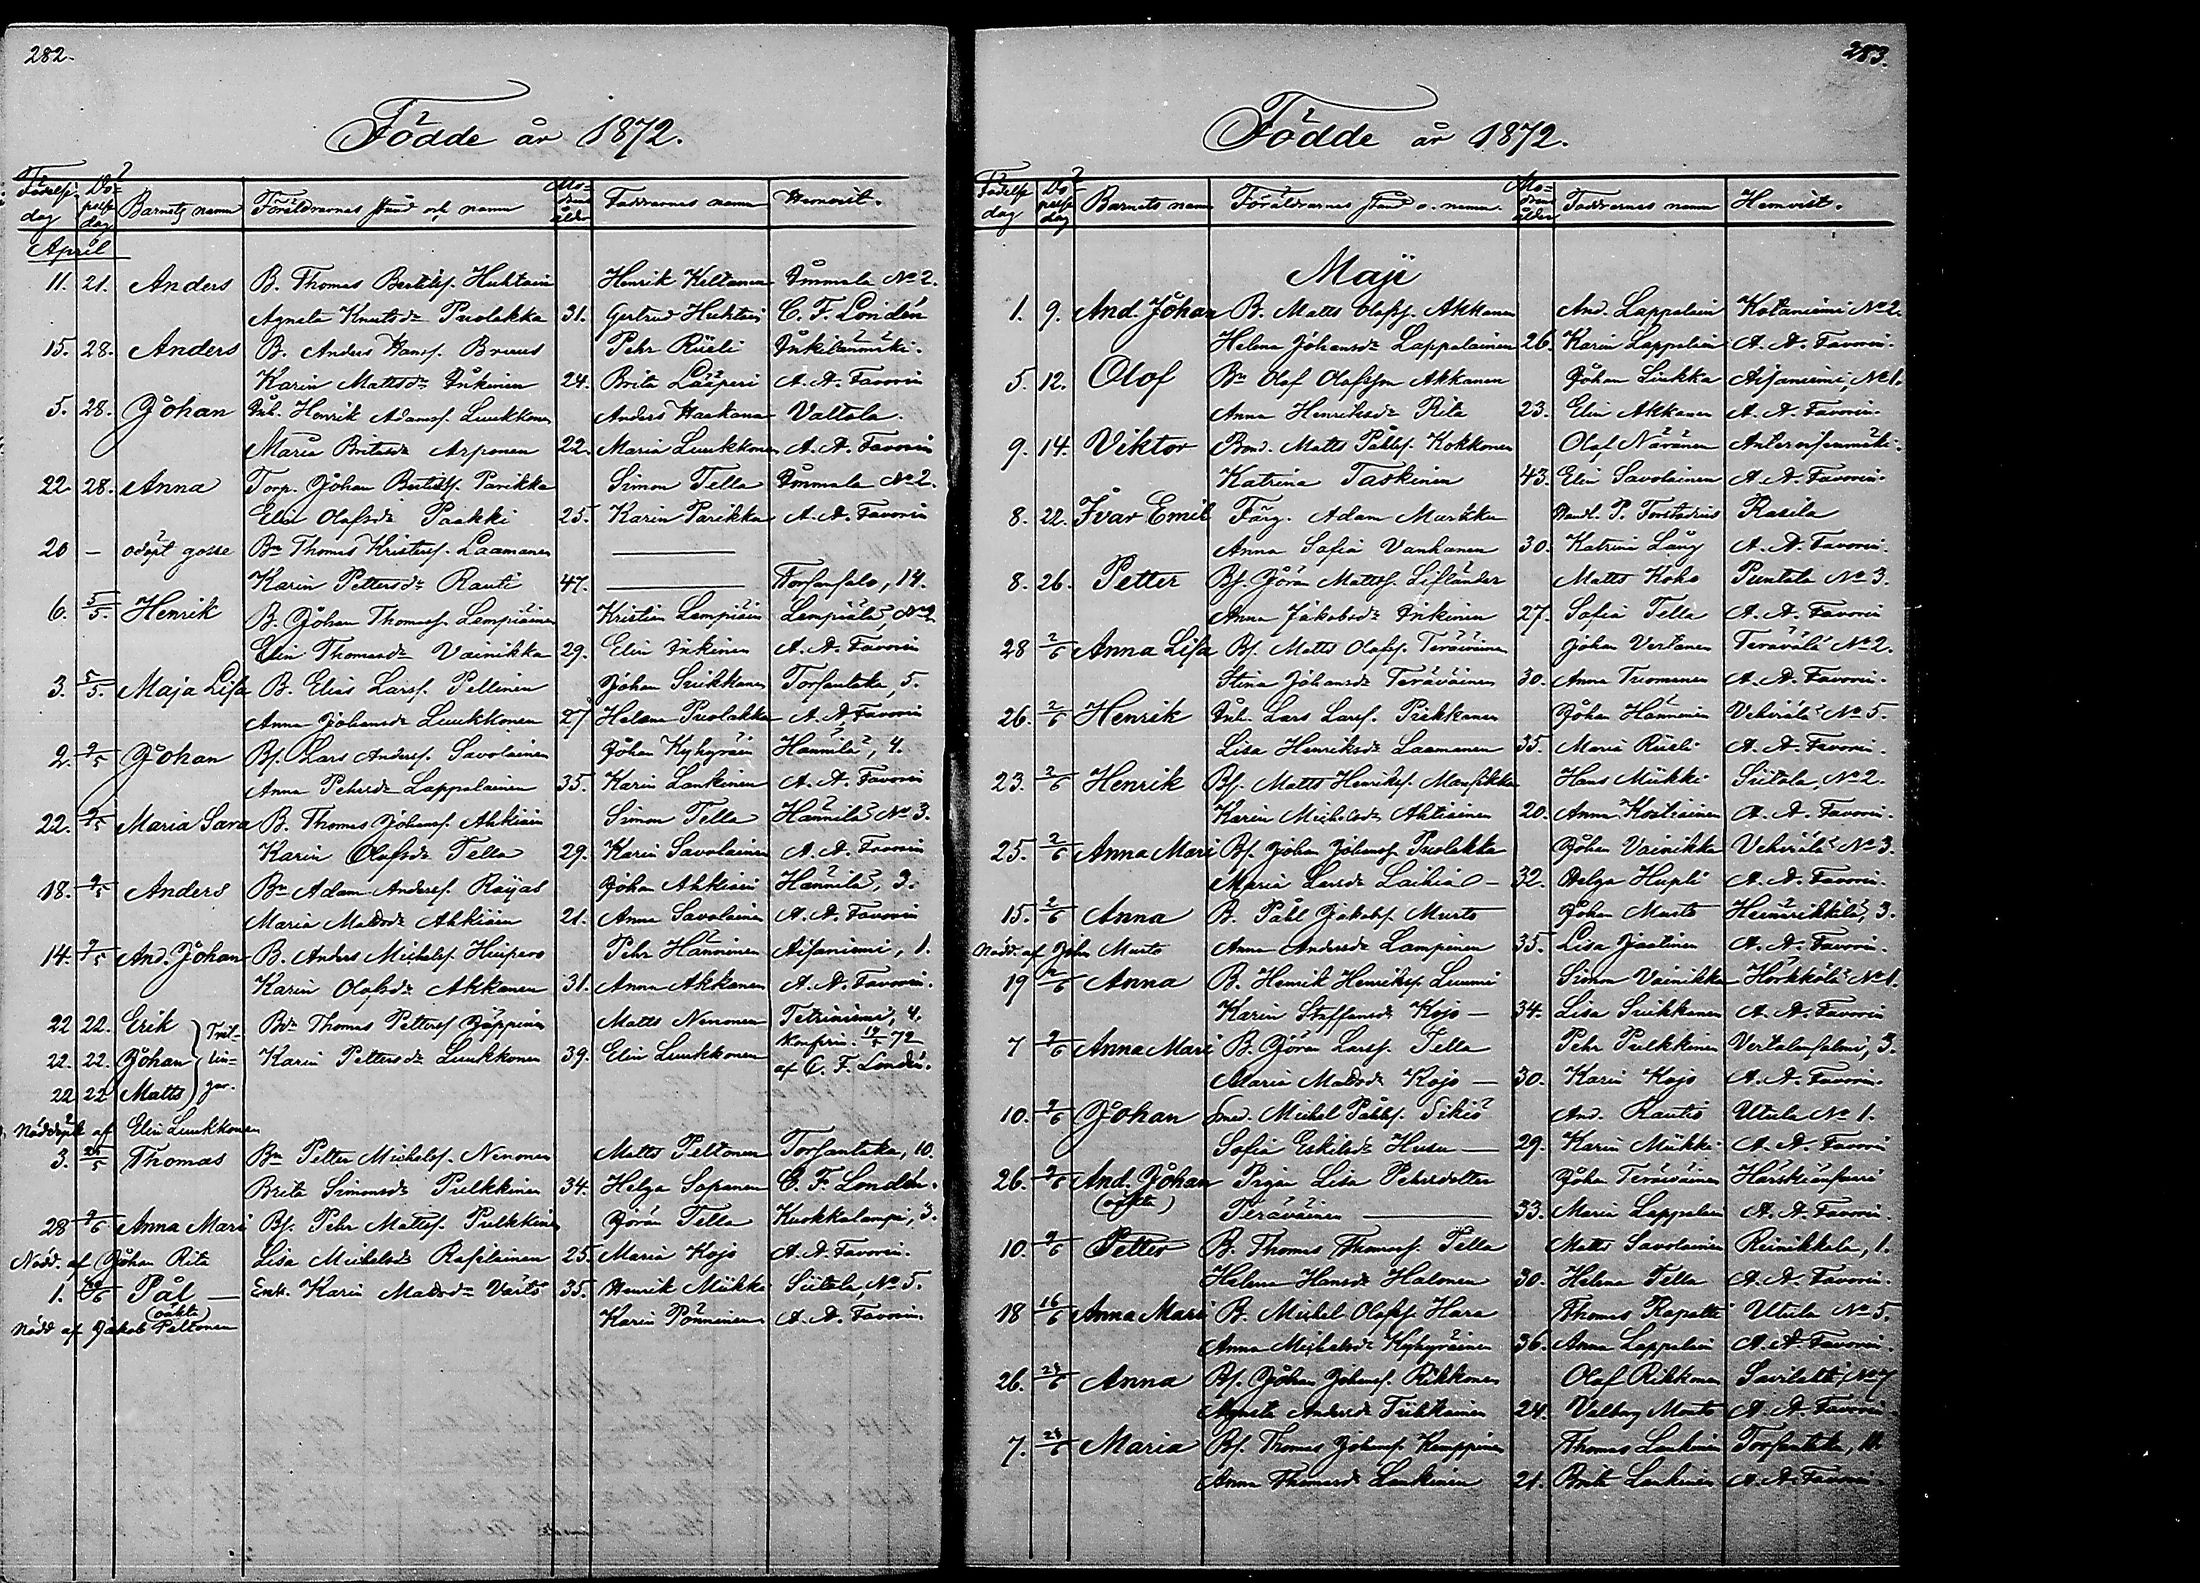 282.
Födde år 1872.
Födelse dag Döpelse dag Barnets namn Föräldrarnes stånd och namn Modrens ålder Faddrarnes namn Hemvist.
April
11. 21. Anders B. Thomas Bertilsf. Huhtain Henrik Keltanen Immala No 2.
Agneta Knutsdr Puolakka 31. Gertrud Huhtain C. F. Londén
15. 28. Anders B. Anders Hansf. Bruus Pehr Rüeli Inkilänmäki.
Karin Mattsdr Inkinen 24. Brita Lääperi A. A. Favorin
5. 28. Johan Inh. Henrik Adamsf. Luukkonen Anders Haakana Valtola.
Maria Britasdr Arponen 22. Maria Luukkonen A. A. Favorin
22. 28. Anna Torp. Johan Bertilsf. Parikka Simon Tella Immala No 2.
Elin Olofsdr Paakki 25. Karin Parikka A. A. Favorin
20 — odöpt gosse Bn Thomas Kristersf. Laamanen
Karin Pettersdr Rauti 47. Torsansalo, 14.
6. 5/5. Henrik B. Johan Thomasf. Lempiäinen Kristian Lempiäin Lempiälä, No 2
Elin Thomasdr Vainikka 29. Elin Inkinen A. A. Favorin
3. 5/5. Maja Lisa B. Elias Larsf. Pellinen Johan Suikkanen Torsantaka, 5.
Anna Johansdr Luukkonen 27 Helena Puolakka A. A. Favorin
2. 9/5 Johan Bf. Lars Andersf. Savolainen Johan Kyhyräin Hännilä, 4.
Anna Pehrsdr Lappalainen 35. Karin Lankinen A. A. Favorin
22. 9/5 Maria Sara B. Thomas Johansf. Ahkiain Simon Tella Hännilä No 3.
Karin Olofsdr Tella 29. Karin Savolainen A. A. Favorin
18. 9/5 Anders Bn Adam Andersf. Rayas Johan Ahkiain Hännilä, 3.
Maria Mattsdr Ahkiain 21. Anna Savolainen A. A. Favorin
14. 9/5 And. Johan B. Anders Michelsf. Hiipero Pehr Hänninen Aisaniemi, 1.
Karin Olofsdr Akkanen 31. Anna Akkanen A. A. Favorin.
22 22. Erik Tril- Bn Thomas Pettersf Jäppinen Matts Nenonen Tetriniemi, 4.
22. 22. Johan lin- Karin Pettersdr Luukkonen 39. Elin Luukkonen Konfirm. 19/5 72
22 22 Matts gar. af C. F. Londén.
Nöddöpte af Elin Luukkonen
3. 26/5 Thomas Bn Petter Michelsf. Nenonen Matts Peltonen Torsantaka, 10.
Brita Simonsdr Pulkkinen 34. Helga Sapanen C. F. Londén.
28 2/6 Anna Mari Bf. Pehr Mattsf. Pulkkinen Jöran Tella Kuokkalampi, 3.
Nödd. af Johan Rita Lisa Michelsdr Rasilainen 25. Maria Kojo A. A. Favorin.
1. Pål — Enk. Karin Mattsdr Värtö 35. Henrik Miikki Siitola, No 5.
(oäkta) Karin Pönninen A. A. Favorin.
Nödd af Jakob Peltonen
283.
Födde år 1872.
Födelse dag Döpelse dag Barnets namn Föräldrarnes stånd o. namn. Modrens ålder Faddrarnes namn Hemvist.
Maji
1. 9. And. Johan B. Matts Olofsf. Akkanen And. Lappalain Kotaniemi No 2.
Helena Johansdr Lappalainen 26. Karin Lappalain A. A. Favorin.
5. 12. Olof Bn Olof Olofsson Akkanen Johan Liukka Aisaniemi No 1.
Anna Henriksdr Rita 23. Elin Akkanen A. A. Favorin.
9. 14. Viktor Bond. Matts Påhlsf. Kokkonen Olof Näränen
Katrina Taskinen 43. Elin Savolainen A. A. Favorin.
8. 22. Ivar Emil Färg. Adam Markku Handl. P. Forstadius Rasila
Anna Sofia Vanhanen 30. Katrina Lång A. A. Favorin.
8. 26. Petter Bf. Jöran Mattsf. Lifländer Matts Koho Puntala No 3.
Anna Jakobsdr Inkinen 27. Sofia Tella A. A. Favorin
28 2/6 Anna Lisa Bf. Matts Olofsf. Teräväinen Johan Vertanen Terävälä No 2.
Stina Johansdr Teräväinen 30. Anna Tuomanen A. A. Favorin.
26. 2/6 Henrik Inh. Lars Larsf. Pirkkanen Johan Hänninen Vehviälä No 5.
Lisa Henriksdr Laamanen 35. Maria Rüeli A. A. Favorin.
23. 2/6 Henrik Bf. Matts Henriksf. Mansikka Hans Miikki Siitola, No 2.
Karin Michelsdr Ahtiainen 20. Anna Kostiainen A. A. Favorin.
25. 2/6 Anna Mari Bf. Johan Johansf Puolakka Johan Vainikka Vehviälä No 3.
Maria Larsdr Laihia — 32. Helga Hupli A. A. Favorin.
15. 2/6 Anna B. Påhl Jakobsf. Murto Johan Murto Heinrikkilä, 3.
Nödd. af John Murto Anna Andersdr Lampinen 35. Lisa Jaatinen A. A. Favorin.
19 2/6 Anna B. Henrik Henriksf. Luumi Simon Vainikka Hörkkölä No 1.
Karin Staffansdr Kojo — 34. Lisa Suikkanen A. A. Favorin
7 9/6 Anna Mari B. Jöran Larsf. Tella Pehr Pulkkinen Vertalansalmi, 3.
Maria Mattsdr Kojo — 30. Karin Kojo A. A. Favorin.
10. 9/6 Johan Smed. Michel Påhlsf. Sikiö And. Rautio Utula No 1.
Sofia Eskilsdr Husu — 29. Karin Miikki A. A. Favorin
26. 9/6 And. Johan Pigan Lisa Pehrsdotter Johan Teräväinen
(oäkta) Teräväinen 33. Maria Lappalain A. A. Favorin.
10. 9/6 Petter B. Thomas Thomasf. Tella Matts Savolainen Reinikkala, 1.
Helena Hansdr Halonen 30. Helena Tella A. A. Favorin.
18 16/6 Anna Mari B. Michel Olofsf Hara Thomas Rapatti Utula No 5.
Anna Michelsdr Kyhyräinen 36. Anna Lappalain A. A. Favorin.
26. 24/6 Anna Bf. Johan Johansf. Rikkonen Olof Rikkonen Savilahti No 7
Agneta Andersdr Tiihkainen 24. Valborg Monto A. A. Favorin
7. 24/6 Maria Bf. Thomas Johansf Kemppinen Thomas Lankinen Torsantaka, 10.
Anna Thomasdr Lankinen 21. Brita Lankinen A. A. Favorin.